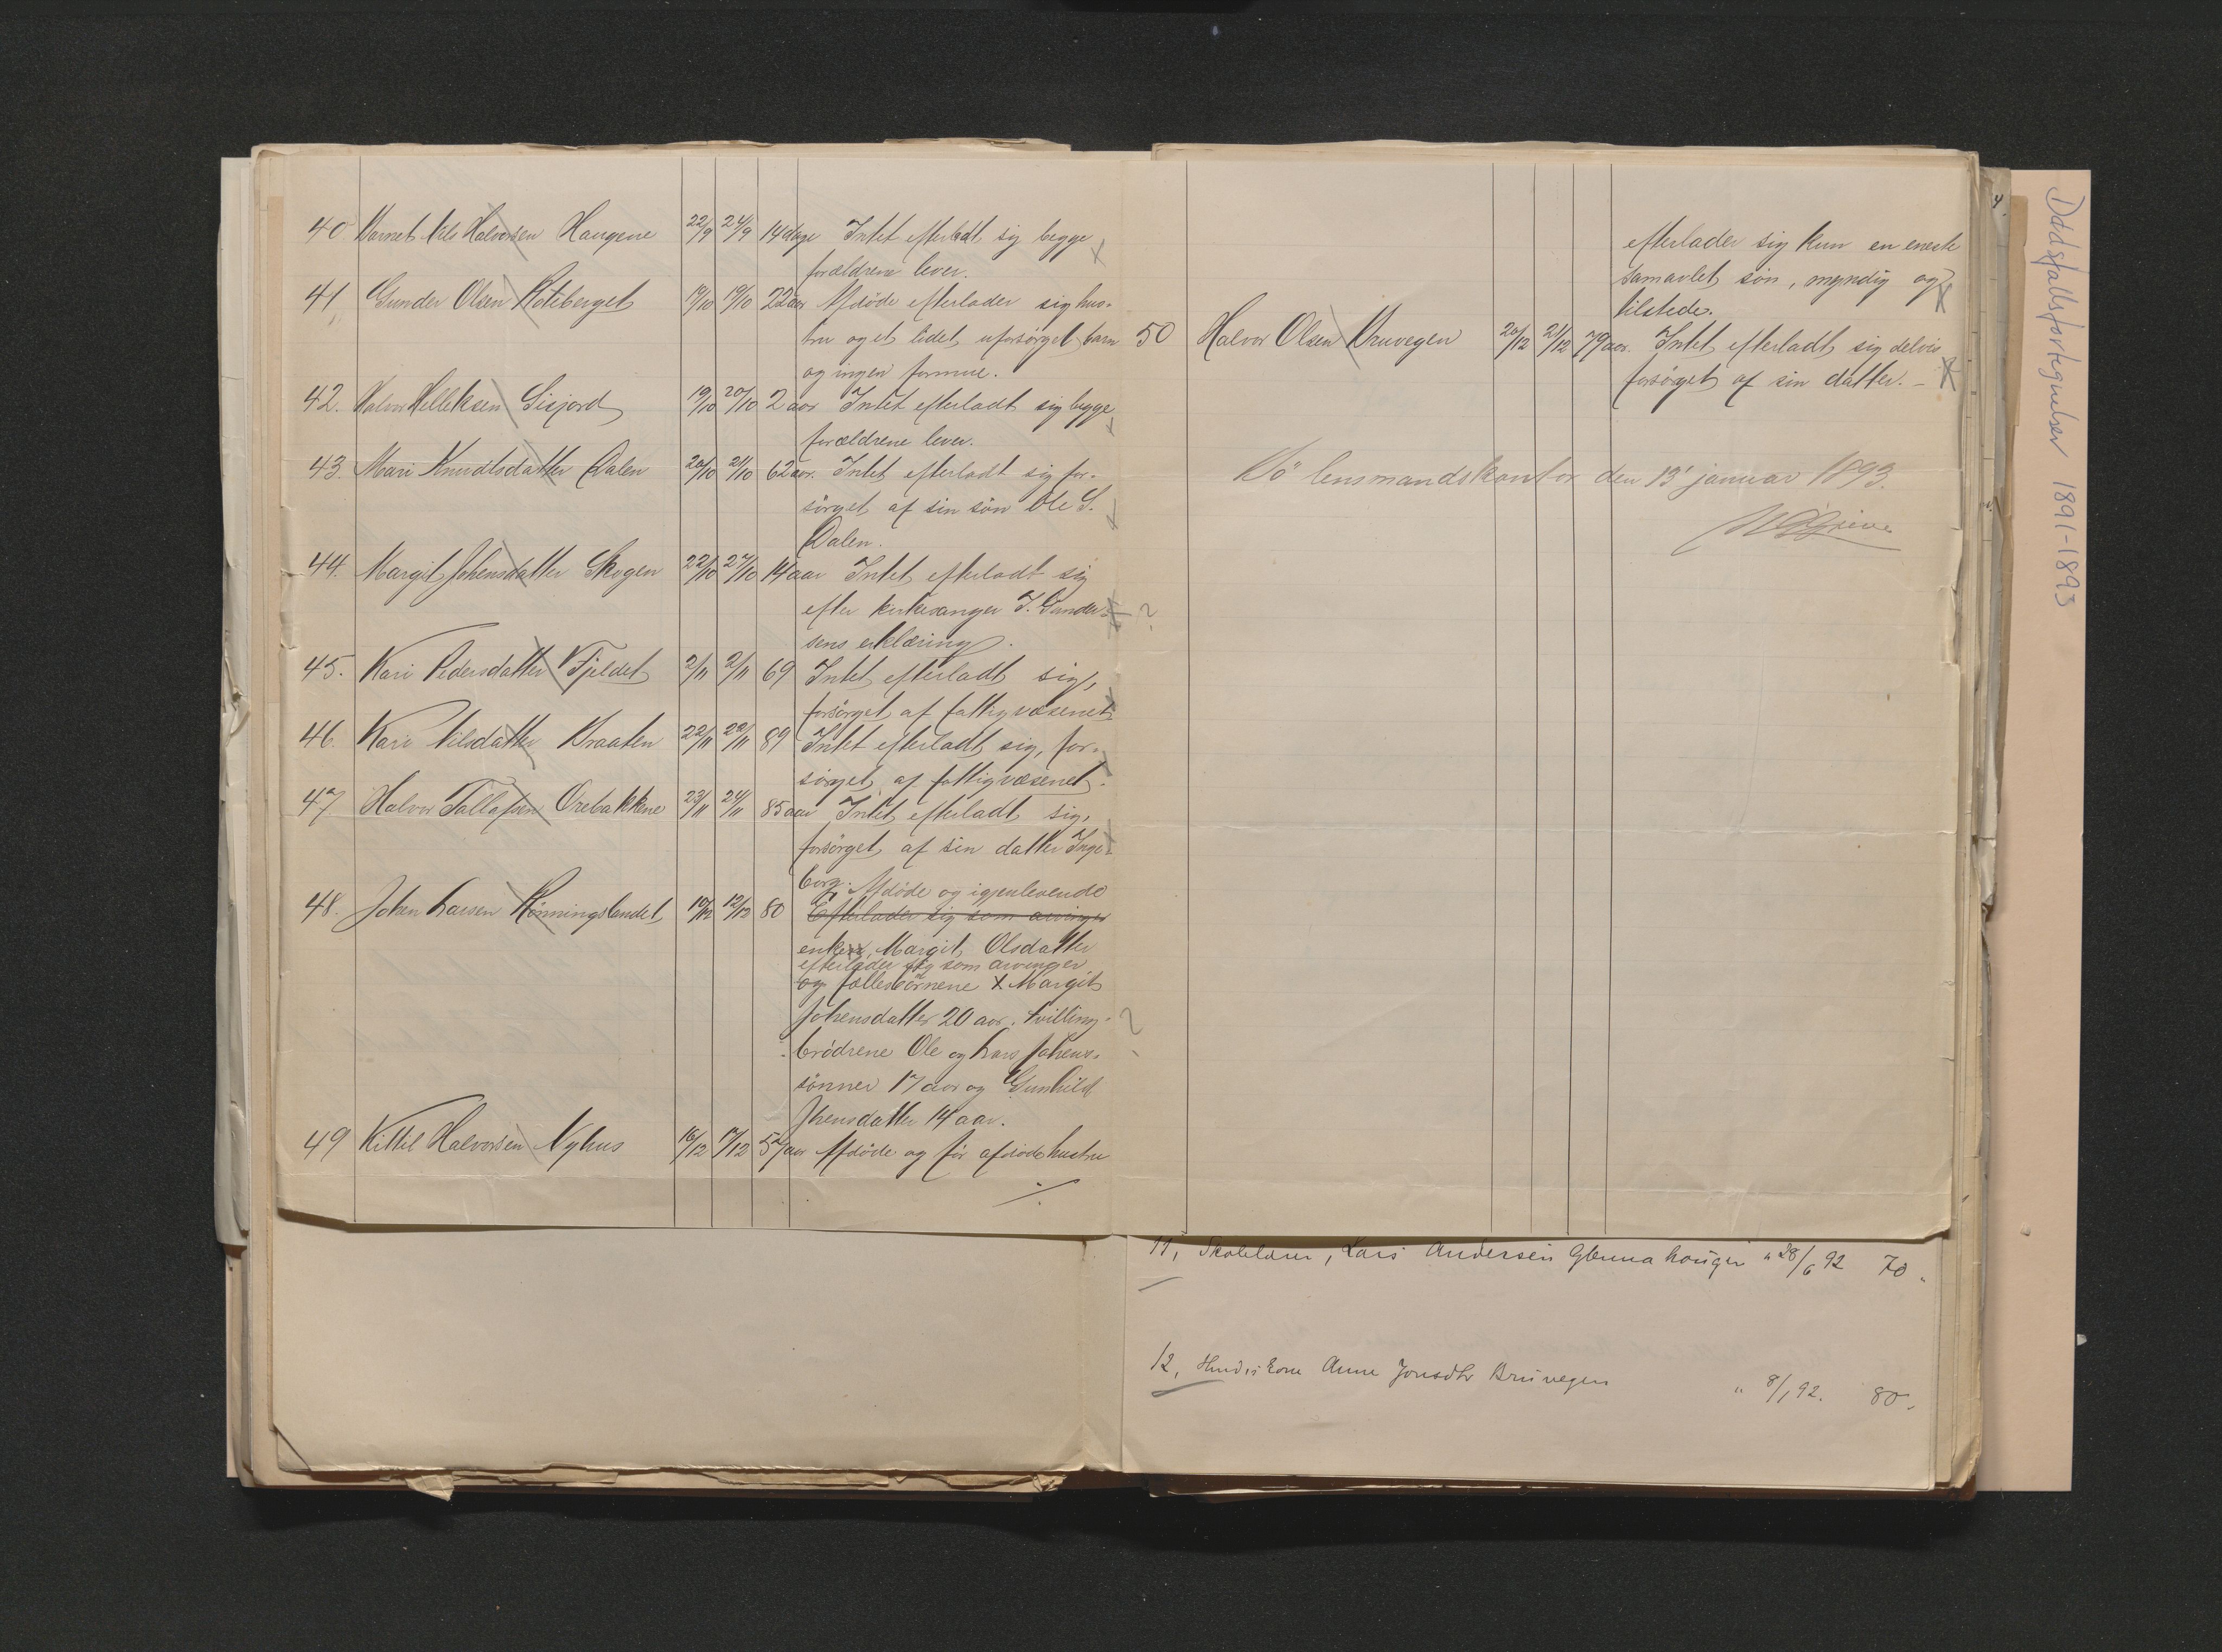 40 Barnet Nils Halvorsen Haugene 22/9 24/9 14 dage Intet efterladt sig begge
forældrene lever.
41 Gunder Olsen Koteberget 19/10 19/10 22 aar Afdøde efterlader sig hus-
tru og et lidet uforsørget barn
og ingen formue.
42. Halvor Helleksen Sisjord 19/10 20/10 2 aar Intet efterladt sig begge
forældrene lever.
43. Mari Knudtsdatter Dalen 20/10 21/10 62 aar. Intet efterladt sig for-
sørget af sin søn Ole S.
Dalen.
44. Margit Johensdatter Skogen 22/10 27/10 14 aar Intet efterladt sig
efter kirkesanger J. Gunder-
sens erklæring. ?
45. Kari Pedersdatter Fjeldet 2/11 2/11 69 Intet efterladt sig,
forsørget af fattigvæsenet
46. Kari Nilsdatter Braaten 22/11 22/11 89 Intet efterladt sig, for-
sørget af fattigvæsenet.
47 Halvor Tallafsen Orebakkene 23/11 24/11 85 aar Intet efterladt sig,
forsørget af sin datter Inge-
borg.
Afdøde og igjenlevende
48. Johen Larsen Rønningslandet 10/12 12/12 80 Efterlader sig som arvinger
enke, Margit Olsdatter
efterlader sig som arvinger
og fællesbørnene x Margit
Johensdatter 20 aar. tvilling-
brødrene Ole og Lars Johens-
sønner 17 aar og Gunhild
Jhensdatter 14 aar. ?
49 Kittil Halvorsen Nyhus 16/12 17/12 57 aar Afdøde og før afdøde hustru
./.
efterlader sig kun en eneste
samavlet søn, myndig og
tilstede.
50 Halvor Olsen Bruvegen 20/12 21/12 79 aar. Intet efterladt sig delvis
forsørget af sin datter. -
Bø lensmandskontor den 13' januar 1893.
11, Skolelærer, Lars Andersen Glenna hougen " 28/6 92 70 "
12, Anne Jonsdtr Bruvegen " 8/1 92. 80 "
Dødsfallsfortegnelser 1891-1893